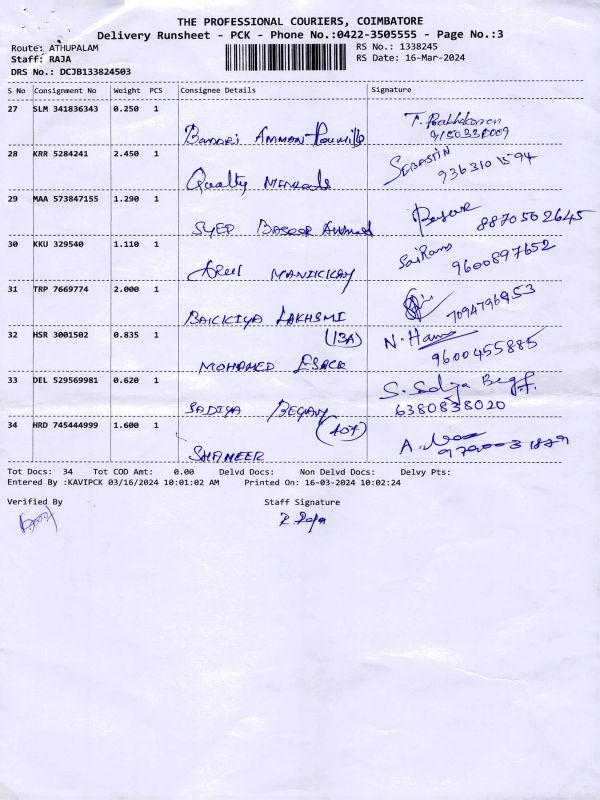 THE PROFESSIONAL COURIERS, COIMBATORE
Delivery Runsheet - PCK - Phone No.:0422-3505555 - Page No.:3
Route: ATHUPALAM RS No.: 1338245
Staff: RAJA RS Date: 16-Mar-2024
DRS No.: DCJB133824503
S No Consignment No Weight PCS Consignee Details Signature
27 SLM 341836343 0.250 1
Bannari Amman
28 KRR 5284241 2.450 1 SEBASTIN
Quality Minerals 9363101594
29 MAA 573847155 1.290 1
SYED BASEER AHMED 8870502645
30 KKU 329540 1.110 1 SaiRam
MANICKKAY 9600897652
31 TRP 7669774 2.000 1
BAKKIYA LAKHSMI 7094796953
(13A)
32 HSR 3001502 0.835 1 N. Hams
MOHAMED ESACK 9600455885
33 DEL 529569981 0.620 1
SADIYA BEGAM 6380838020
(407)
34 HRD 745444999 1.600 1
SHAMEER
Tot Docs: 34 Tot COD Amt: 0.00 Delvd Docs: Non Delvd Docs: Delvy Pts:
Entered By :KAVIPCK 03/16/2024 10:01:02 AM Printed On: 16-03-2024 10:02:24
Verified By Staff Signature